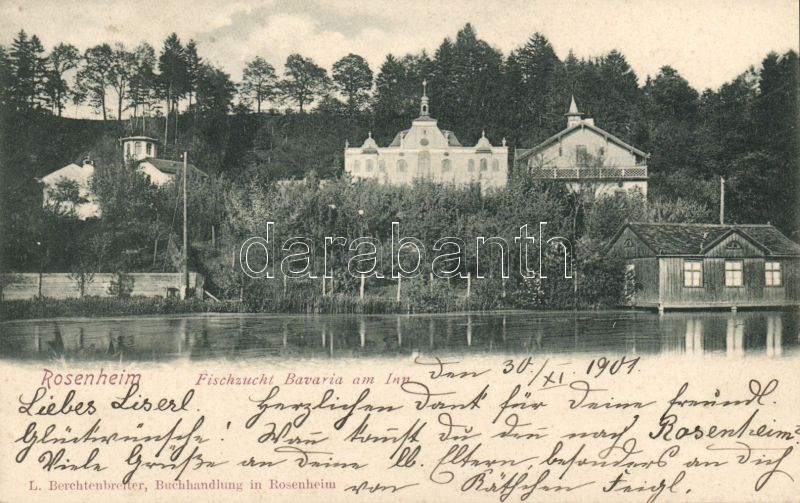 darabanth
Rosenheim Fischzucht Bavaria am Inn
den 30./XI 1901.
Liebes Liserl. Herzlichen Dank für Deine freundl.
Glückwünsche! Wann kommst du denn nach Rosenheim?
Viele Grüße an deine lb. Eltern, besonders an dich
L. Berchtenbreiter, Buchhandlung in Rosenheim
von Käthchen Feigl.